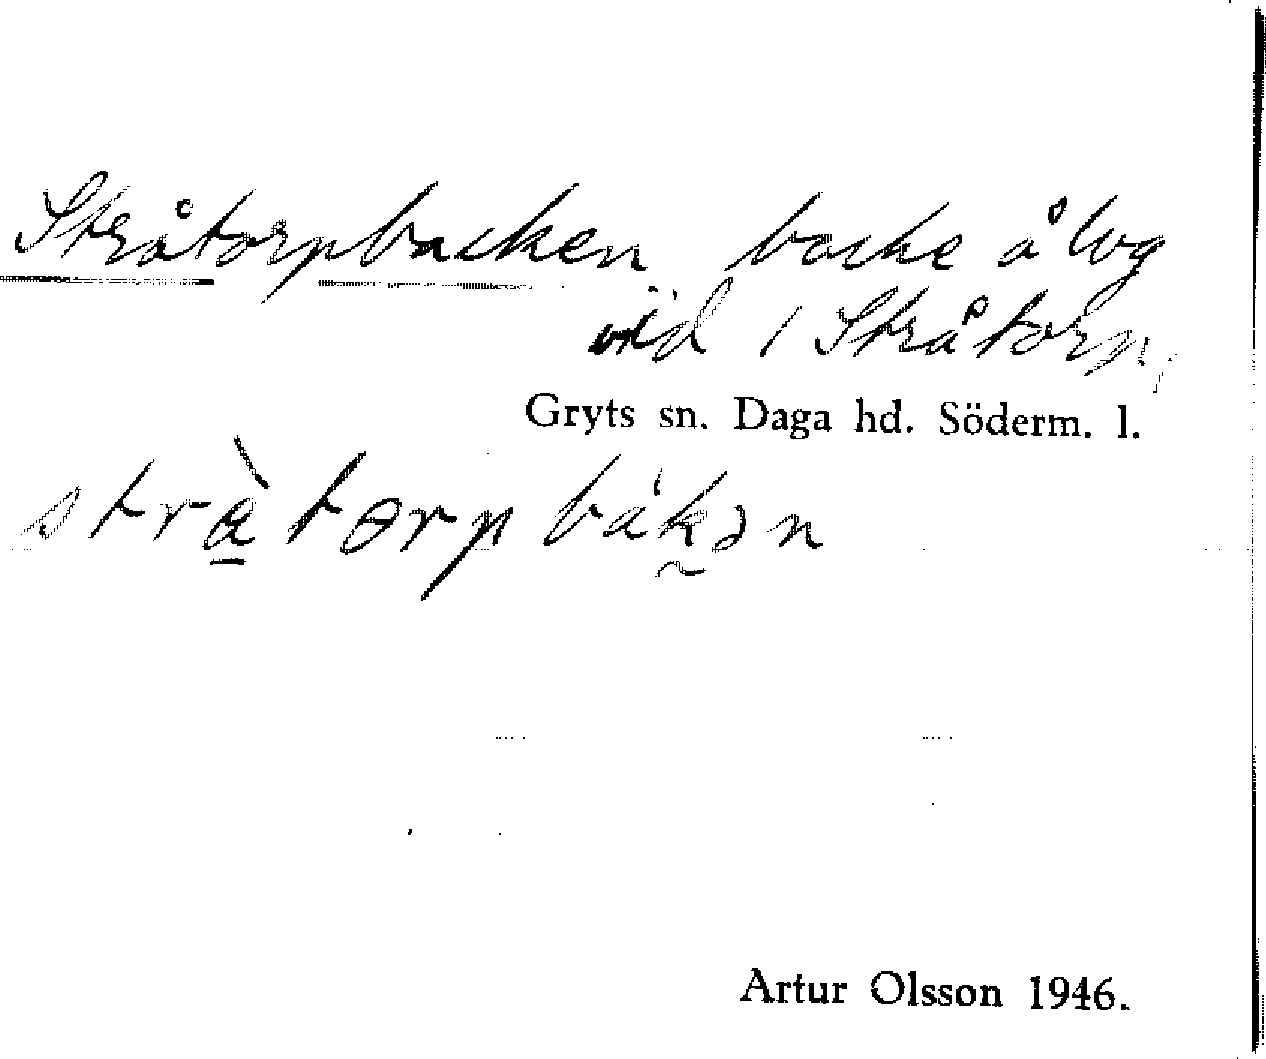 Stråtorpbacken backe å lvg
vid / Stråtorp,
Gryts sn. Daga hd. Söderm. l.
strὰtɵrp bákən
Artur Olsson 1946.